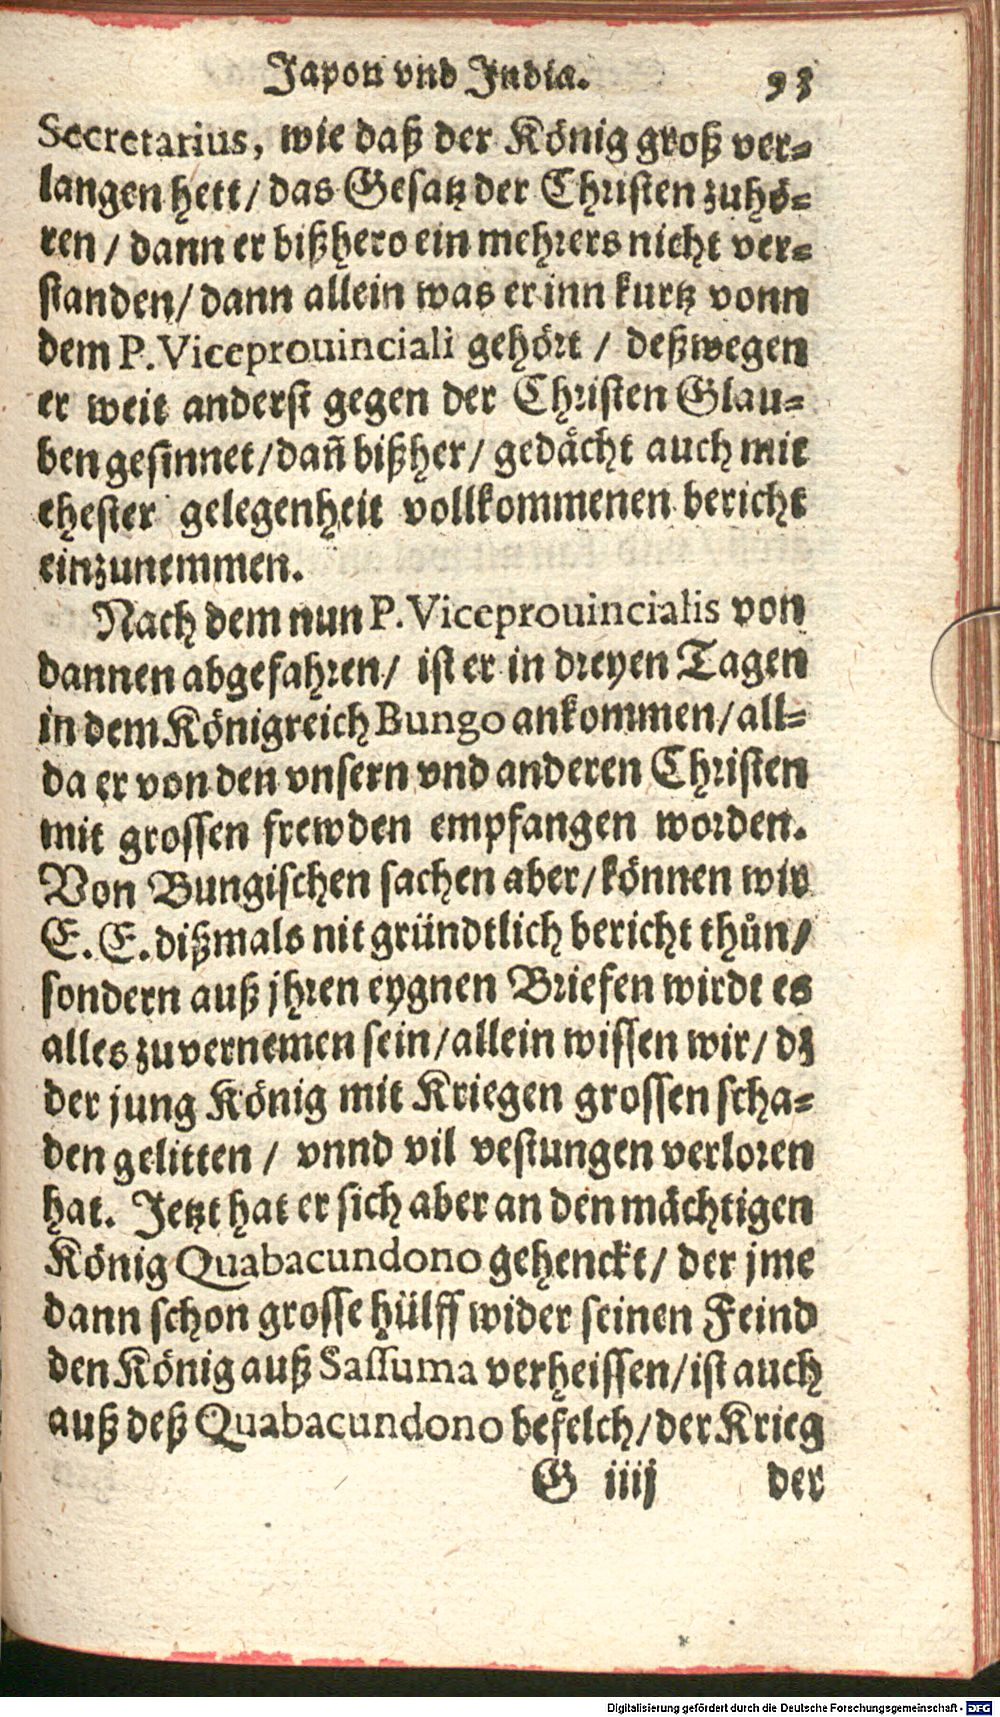 Japon vnd India. 93
Secretarius, wie daß der König groß ver-
langen hett/ das Gesatz der Christen zuhö-
ren / dann er bißhero ein mehrers nicht ver-
standen/ dann allein was er inn kurtz vonn
dem P. Viceprouinciali gehört / deßwegen
er weit anderst gegen der Christen Glau-
ben gesinnet/dañ bißher/ gedächt auch mit
ehester gelegenheit vollkommenen bericht
einzunemmen.
Nach dem nun P. Viceprouincialis von
dannen abgefahren/ ist er in dreyen Tagen
in dem Königreich Bungo ankommen/all-
da er von den vnsern vnd anderen Christen
mit grossen frewden empfangen worden.
Von Bungischen sachen aber/können wir
E. E. dißmals nit gründtlich bericht thůn/
sondern auß jhren eygnen Briefen wirdt es
alles zuvernemen sein/allein wissen wir/ dz
der jung König mit Kriegen grossen scha-
den gelitten / vnnd vil vestungen verloren
hat. Jetzt hat er sich aber an den mächtigen
König Quabacundono gehenckt/ der jme
dann schon grosse hülff wider seinen Feind
den König auß Sassuma verheissen/ist auch
auß deß Quabacundono befelch/der Krieg
G iiij der
Digitalisierung gefördert durch die Deutsche Forschungsgemeinschaft - DFG